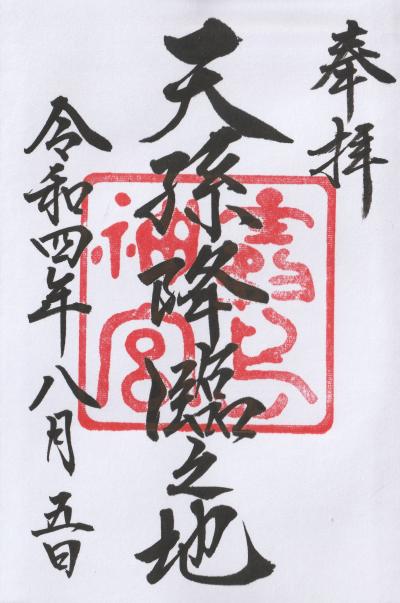 奉拝
天孫降臨之地
令和四年八月五日
神宮